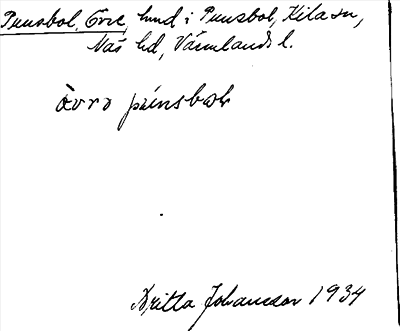 Prinsbol, Övre, hmd i Prinsbol, Kila sn,
Näs hd, Värmlands l.
övrə prinsbɷl
Britta Johansson 1934